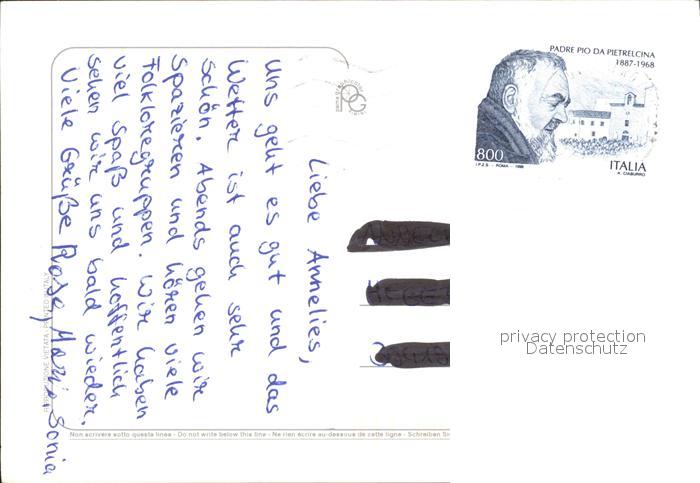 Liebe Annelies,
Uns geht es gut und das
Wetter ist auch sehr
schön. Abends gehen wir
spazieren und hören viele
Folkloregruppen. Wir haben
viel Spaß und hoffentlich
sehen wir uns bald wieder.
Viele Grüße Rosa, Maria, Sonia
PADRE PIO DA PIETRELCINA
1887-1968
800
ITALIA
I.P.Z.S. - ROMA - 1998
A. CIABURRO
privacy protection
Datenschutz
Non scrivere sotto questa linea - Do not write below this line - Ne rien écrire au-dessous de cette ligne - Schreiben Si
RIPRODUZIONE VIETATA - PRINTED IN ITALY